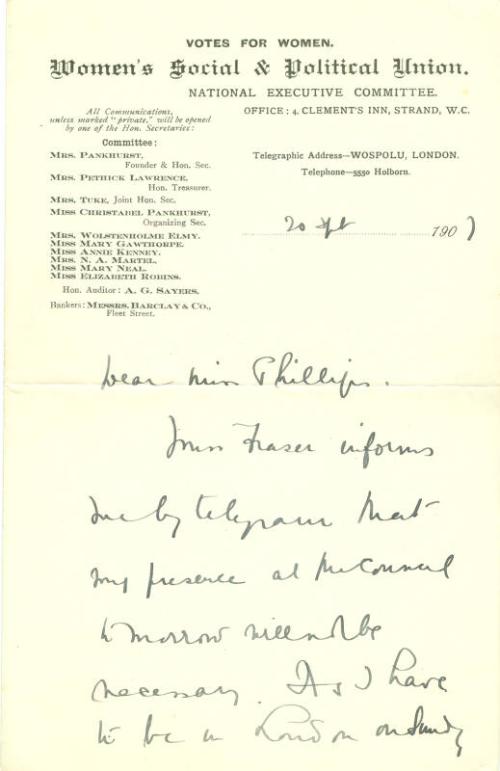 VOTES FOR WOMEN.
Women's Social & Political Union.
NATIONAL EXECUTIVE COMMITTEE.
All Communications,
unless marked "private," will be opened
by one of the Hon. Secretaries:
OFFICE: 4, CLEMENT'S INN, STRAND, W.C.
Committee:
MRS. PANKHURST,
Founder & Hon. Sec.
MRS. PETHICK LAWRENCE,
Hon. Treasurer.
MRS. TUKE, Joint Hon. Sec.
MISS CHRISTABEL PANKHURST,
Organizing Sec.
MRS. WOLSTENHOLME ELMY.
MISS MARY GAWTHORPE.
MISS ANNIE KENNEY.
MRS. N. A. MARTEL.
MISS MARY NEAL.
MISS ELIZABETH ROBINS.
Hon. Auditor: A. G. SAYERS,
Bankers: MESSRS. BARCLAY & CO.,
Fleet Street.
Telegraphic Address—WOSPOLU, LONDON.
Telephone—5550 Holborn.
20 Sept 1907
Dear Miss Phillips.
Miss Fraser informs
me by telegram that
my presence at the Council
to morrow will not be
necessary. As I have
to be in London on Sunday